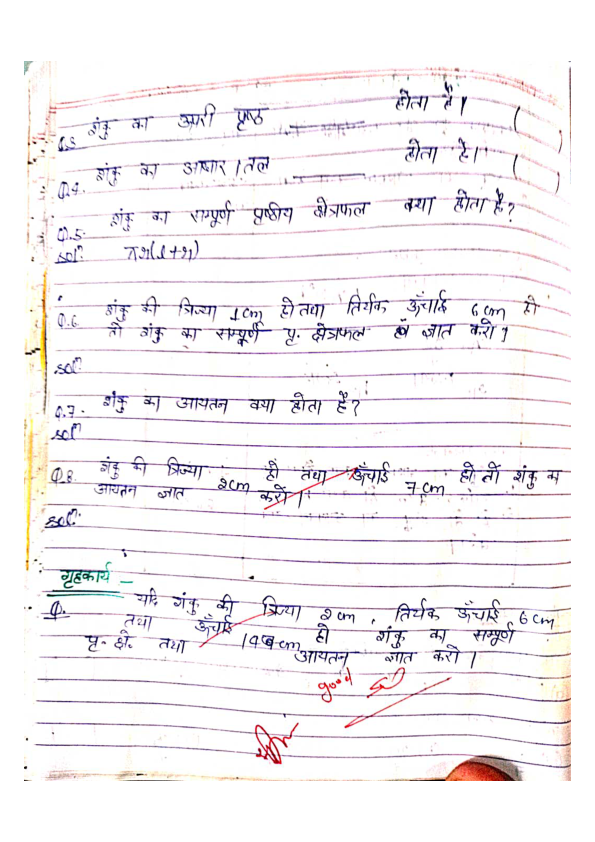 Q.3 शंकु का ऊपरी पृष्ठ ______ होता है। ( )
Q.4. शंकु का आधार / तल ______ होता है।। ( )
Q.5. शंकु का सम्पूर्ण पृष्ठीय क्षेत्रफल क्या होता है?
solⁿ πr(l+r)
Q.6 शंकु की त्रिज्या 1cm हो तथा तिर्यक ऊँचाई 6cm हो
तो शंकु का सम्पूर्ण पृ. क्षेत्रफल ज्ञात करो।
solⁿ
Q.7. शंकु का आयतन क्या होता है?
solⁿ
Q.8 शंकु की त्रिज्या 2cm हो तथा ऊँचाई 7cm हो तो शंकु का
आयतन ज्ञात करो।
solⁿ
गृहकार्य –
Q. यदि शंकु की त्रिज्या 2cm, तिर्यक ऊँचाई 6cm
तथा ऊँचाई cm हो शंकु का सम्पूर्ण
पृ. क्षे. तथा आयतन ज्ञात करो।
good